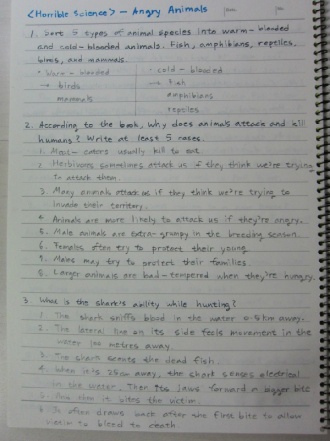 <Horrible Science> - Angry Animals
1. Sort 5 types of animal species into warm-blooded
and cold-blooded animals. Fish, amphibians, reptiles,
birds, and mammals.
• Warm-blooded • cold-blooded
→ birds → fish
mammals amphibians
reptiles
2. According to the book, Why does animals attack and kill
humans? Write at least 5 cases.
1. Meat-eaters usually kill to eat.
2. Herbivores sometimes attack us if they think we're trying
to attack them.
3. Many animals attack us if they think we're trying to
invade their territory.
4. Animals are more likely to attack us if they're angry.
5. Male animals are extra-grumpy in the breeding season.
6. Females often try to protect their young.
7. Males may try to protect their families.
8. Larger animals are bad-tempered when they're hungry.
3. What is the shark's ability while hunting?
1. The shark sniffs blood in the water 0.5km away.
2. The lateral line on its side feels movement in the
water 100 metres away.
3. The shark scents the dead fish.
4. When it's 25cm away, the shark senses electrical
in the water. Then its jaws forward a bigger bite
5. it bites the victim.
6. Is often draws back after the first bite to allow
victim to bleed to death.